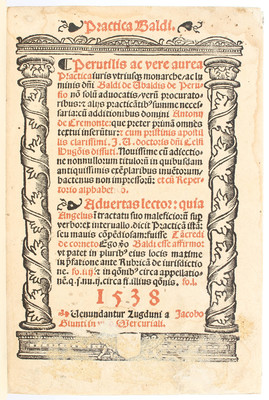 Practica Baldi.
Perutilis ac vere aurea
Practica iuris vtriusq; monarche: ac lu
minis dñi Baldi de Ubaldis de Peru
sio nō solū aduocatis: verū procurato
ribus: ⁊ alijs practicātib⁹ summe neces
saria: cū additionibus domini Antonij
de Cremonte: que preter primā omnes
textui inseruntur: ⁊ cum pristinis apostil
lis clarissimi. J. U. doctoris dñi Celsi
Hugōis dissuti. Nouissime cū adiectio
ne nonnullorum titulorū in quibusdam
antiquissimis exēplaribus inuētorum: 
bactenus non impressorū: etc̄ū Reper
torio alphabetico
Aduertas lector: quia
Angelus i tractatu suo maleficiorū sup
verbo ex interuallo. dicit Practicā istā:
seu mauis cōpēdiosam: fuisse Tācredi
de corneto Ego ꝟo Baldi esse affirmo:
vt patet in plurib⁹ eius locis maxime
i p̄fatione ante Rubricā de iurisdictio
ne. fo. iiij. ⁊ in q̄onib⁹ circa appellatio
nē. q. j. nu. ij. circa fi. illius q̄onis. fo. l.
1538
Uenundantur Lugduni a Jacobo
Giunti in Mercuriali.